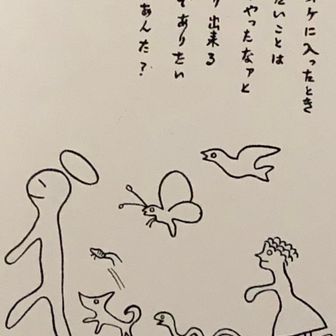 ケに入ったとき
たいことは
やったなァと
り出来る
でありたい
あんた?